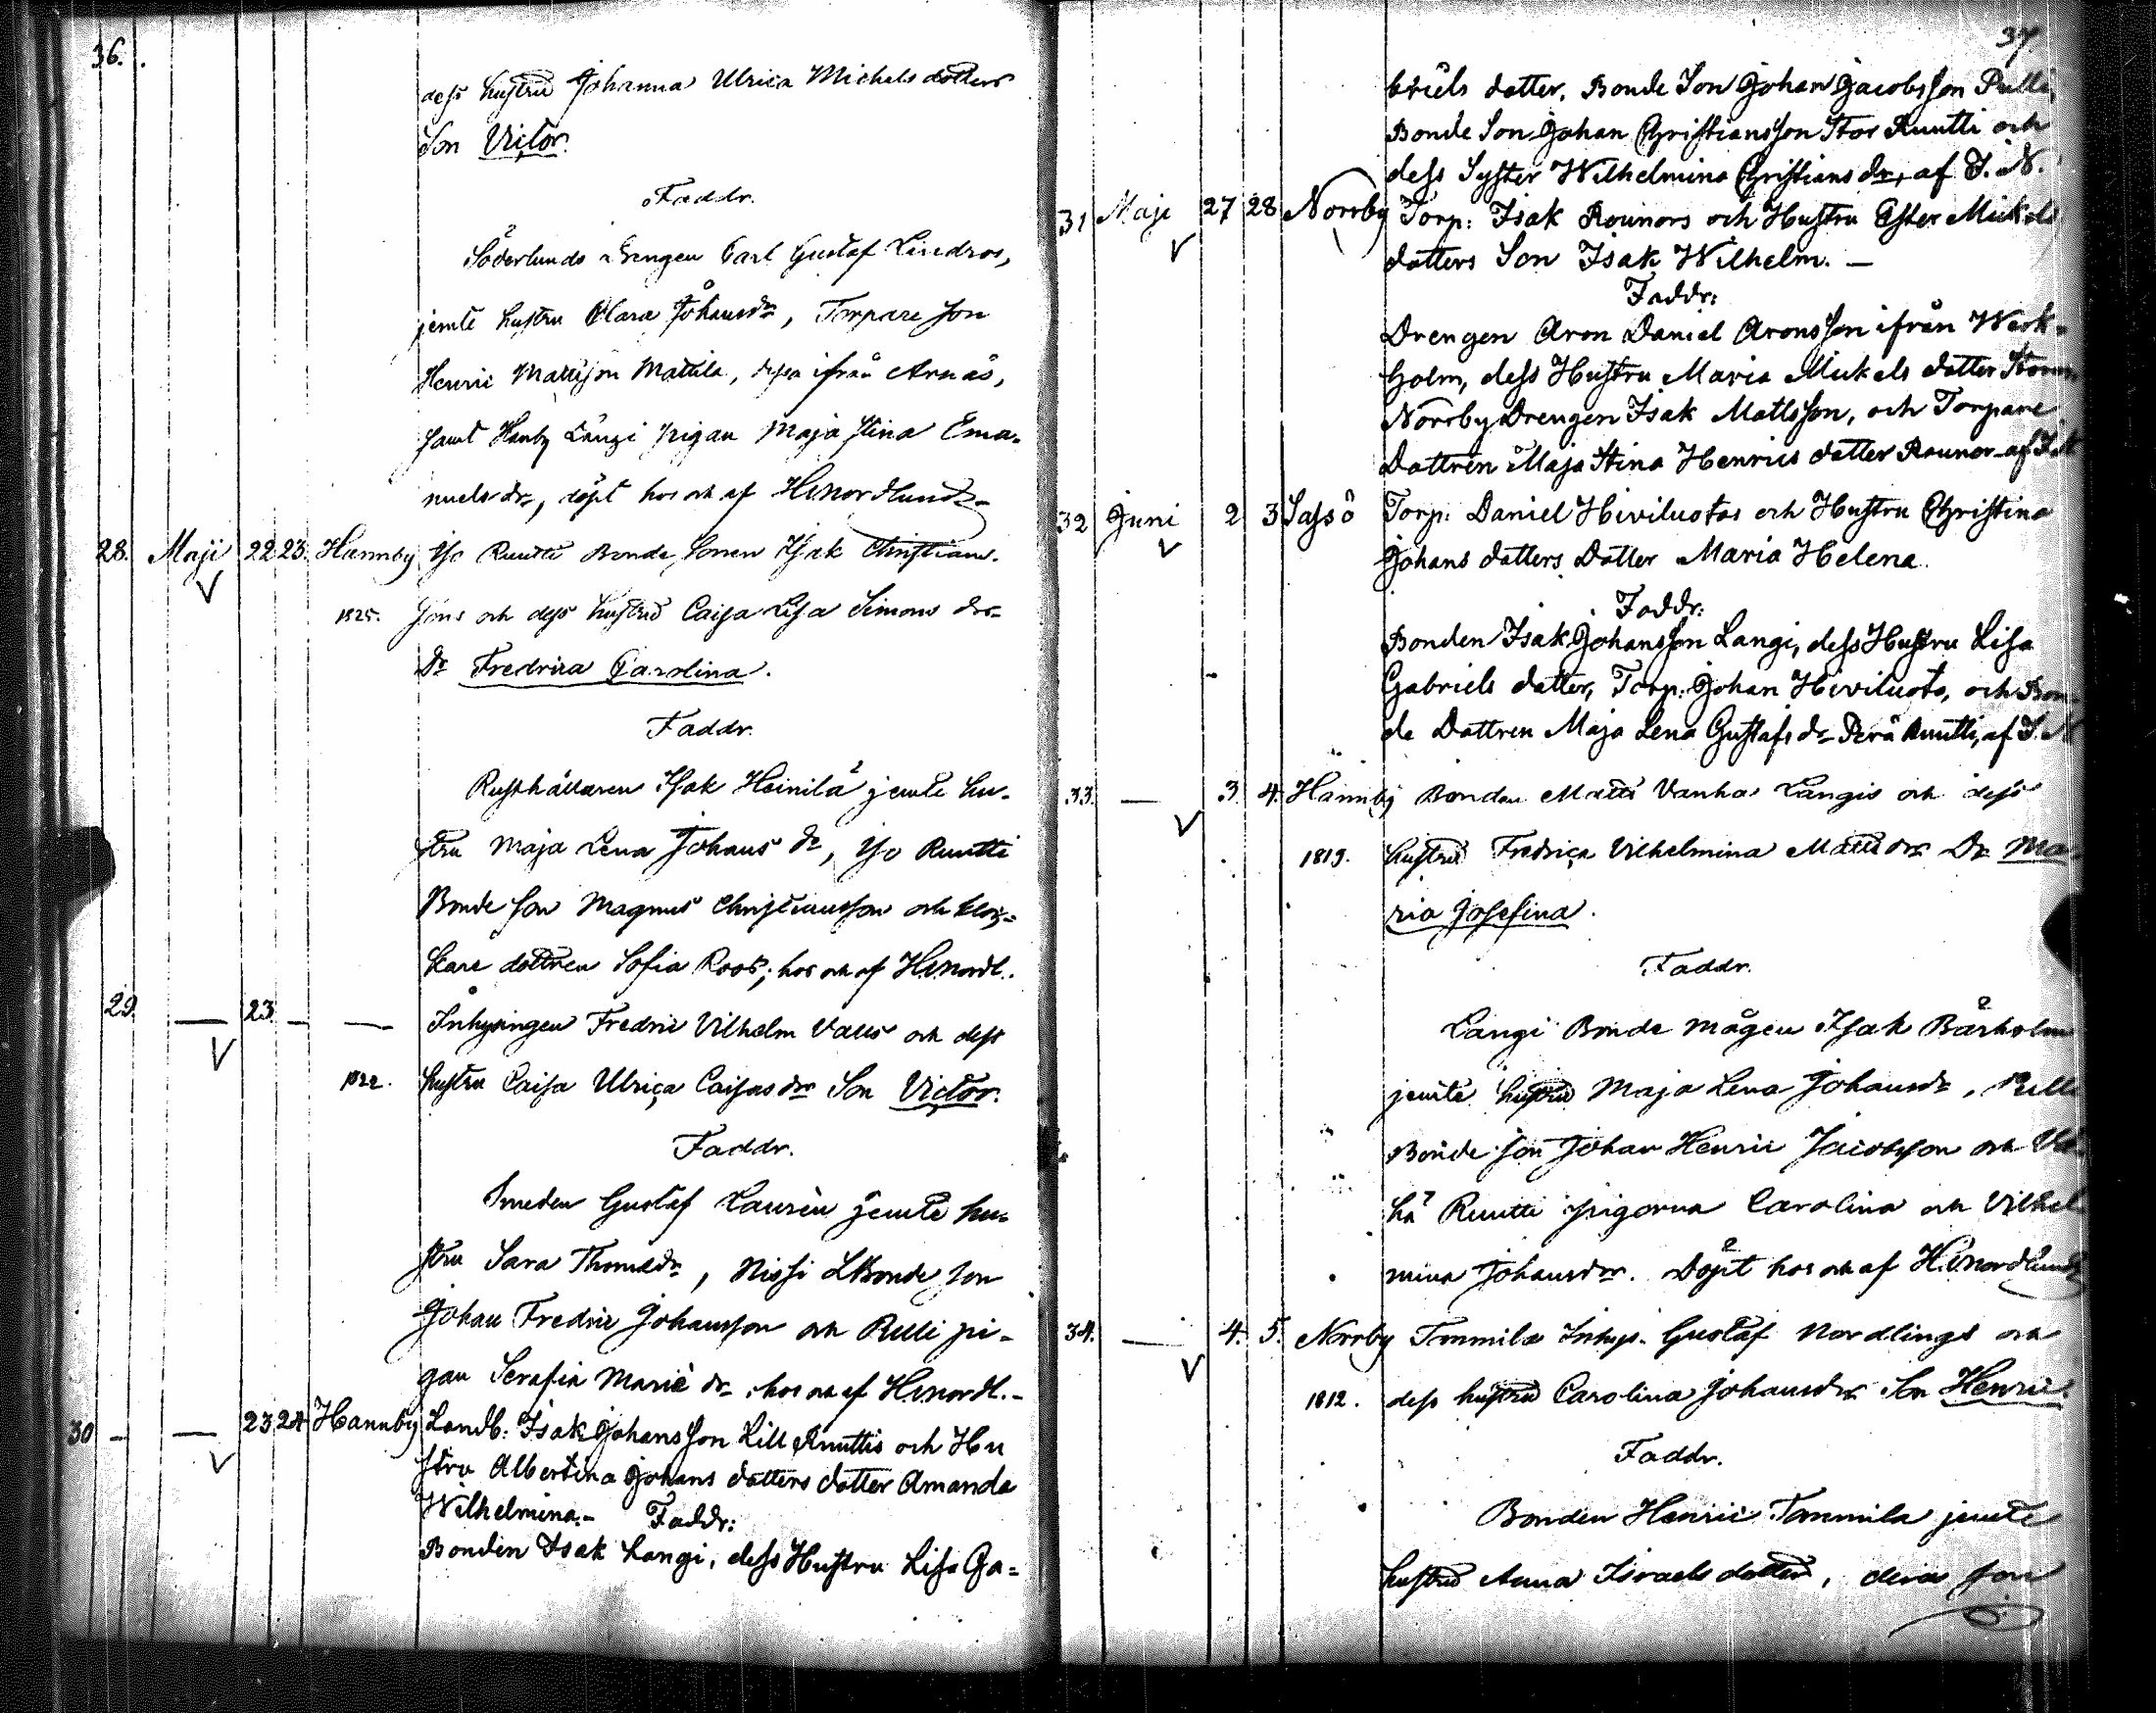 36.
dess hustru Johanna Ulrica Michelsdotters
Son Victor.
Faddr.
Söderlunds drengen Carl Gustaf Lindros,
jemte hustru Clara Johansdr, Torpare son
Henric Mattsson Mattila, ifrån Arnäs,
samt Hanby Långi pigan Maja Stina Ema-
nuelsdr, döpt hos och af H. Nordlund
28. Maji 22 23. Hannby Yso Ruutti Bonde Sonen Isak Christians-
1825. sons och dess hustru Caisa Lisa Simons drs
Dr Fredrica Carolina.
Faddr.
Rusthållaren Isak Heinilä jemte hu-
stru Maja Lena Johans dr, Yso Ruutti
Bonde son Magnus Christiansson och kloc-
kare dottren Sofia Roos; hos och af H. Nordl.
29. — 23 — — Inhysingen Fredric Vilhelm Valls och dess
1822. hustru Caisa Ulrica Caisasdrs Son Victor.
Faddr.
Smeden Gustaf Laurén jemte hu-
stru Sara Thomasdr, Nissi LBonde son
Johan Fredric Johansson och Pulli pi-
gan Serafia Mariè dr. hos och af H. Nordl.-
30 — — 23 24 Hannby Landb: Isak Johansson Lill Ruuttis och Hu
stru Albertina Johans dotters dotter Amanda
Wilhelmina.- Faddr:
Bonden Isak Langi, dess Hustru Lisa Ga=
37
briels dotter, Bonde Son Johan Jacobsson Pulli,
Bonde Son Johan Christiansson Stor Ruutti och
dess Syster Wilhelmina Christians dr, af I. N.
31 Maji 27 28 Norrby Torp: Isak Rounors och Hustru Ester Mickels
dotters Son Isak Wilhelm. —
Faddr:
Drengen Aron Daniel Aronsson ifrån Werk-
holm, dess Hustru Maria Mickels dotter
Norrby Drengen Isak Mattsson, och Torpare
Dottren Maja Stina Henrics dotter Rounor af I. N
32 Juni 2 3 Sassö Torp: Daniel Hiviluotos och Hustru Christina
Johans dotters Dotter Maria Helena.
Faddr:
Bonden Isak Johansson Langi, dess Hustru Lisa
Gabriels dotter, Torp. Johan Hiviluoto, och Bon-
de Dottren Maja Lena Gustafs dr Perä Ruutti, af I. N
33. — 3 4. Hannby Bonden Matts Vanha Långis och dess
1819. hustru Fredrica Vilhelmina Matts drs Dr Ma-
ria Josefina.
Faddr.
Långi Bonde mågen Isak Bårholm
jemte hustru Maja Lena Johansdr, Pulli
Bonde son Johan Henric Jacobsson och
hä Ruutti pigorna Carolina och Vilhel
mina Johansdr. Döpt hos och af H. Nordlund
34. — 4. 5. Norrby Tommila Inhys. Gustaf Nordlings och
1812. dess hustru Carolina Johansdrs Son Henric.
Faddr.
Bonden Henric Tommila jemte
hustru Anna Israelsdotter, deras son